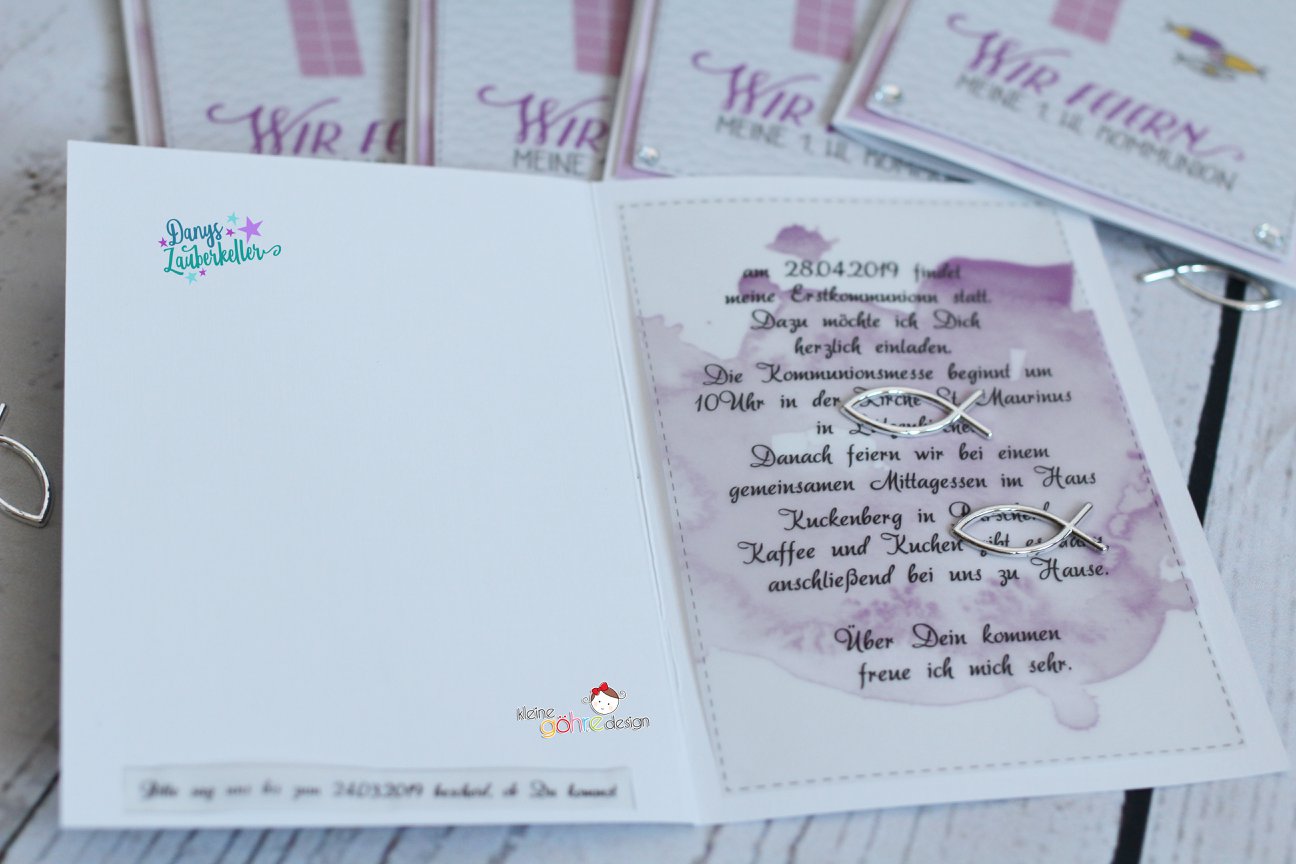 WIR FE
WIR
MEINE
WIR
MEINE 1. HL. KOMMUN
WIR FEIERN
MEINE 1. HL. KOMMUNION
Danys
Zauberkeller
am 28.04.2019 findet
meine Erstkommunionn statt.
Dazu möchte ich Dich
herzlich einladen.
Die Kommunionsmesse beginnt um
10Uhr in der Kirche St. Maurinus
in
Danach feiern wir bei einem
gemeinsamen Mittagessen im Haus
Kuckenberg in
Kaffee und Kuchen gibt es
anschließend bei uns zu Hause.
Über Dein kommen
freue ich mich sehr.
kleine
göhre design
Bitte sag uns bis zum 24.03.2019 bescheid, ob Du kommst